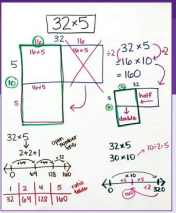 32×5
16 32 16
5 16×5 16×5
10
5 16×5
÷2 32×5 ×2
=16×10
=160
16 32
half
10 5
double
32×5
2+2+1
open number line
×64 ×64 ×32
0 64 128 160
1 2 4 5
32 64 128 160
ratio table
32×5
30×10 10÷2=5
×10 ×5
0 ÷2 320